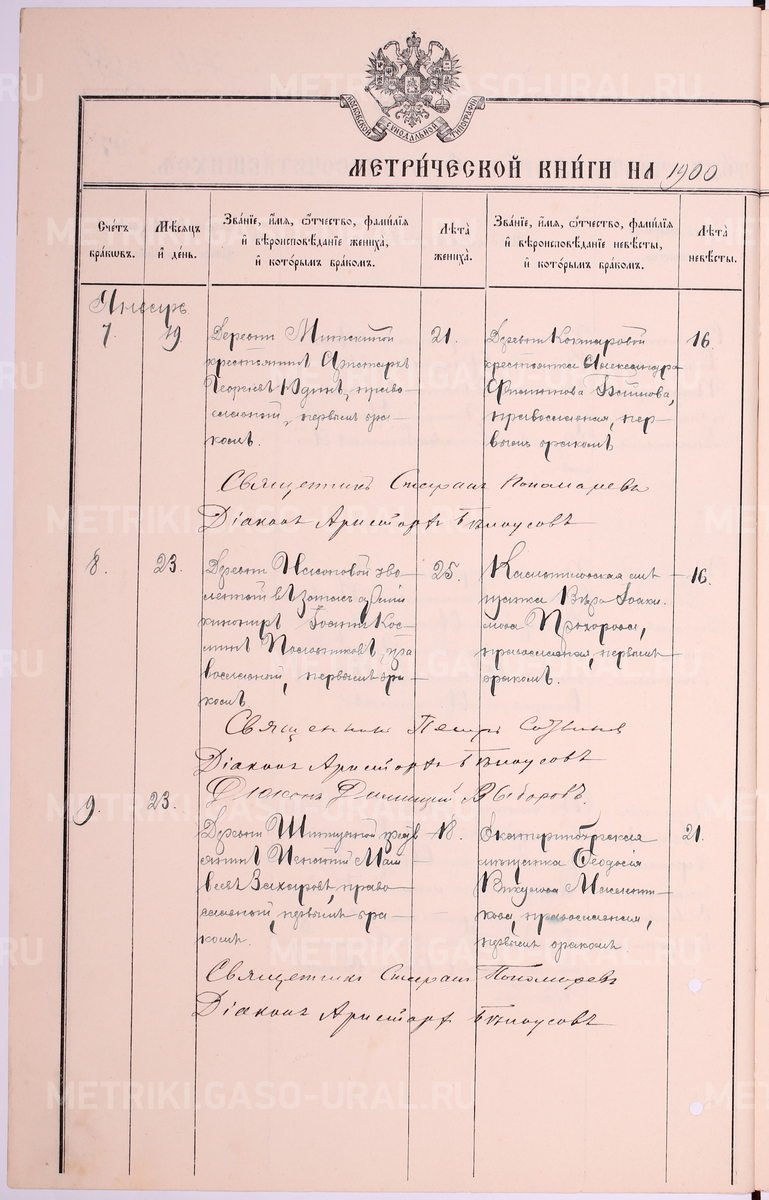 METRIKI.GASO-URAL.RU
МОСКОВСКОЙ СѴНОДАЛЬНОЙ ТИПОГРАФІИ
МЕТРИ́ЧЕСКОЙ КНИ́ГИ НА 1900
Сче́тъ бра́кѡвъ.
Мѣ́сяцъ и҆ де́нь.
Зва́ніе, и҆́мя, ѻ҆́тчество, фами́лія и҆ вѣроисповѣ́даніе жениха̀, и҆ кото́рымъ бра́комъ.
Лѣта̀ жениха̀.
Зва́ніе, и҆́мя, ѻ҆́тчество, фами́лія и҆ вѣроисповѣ́даніе невѣ́сты, и҆ кото́рымъ бра́комъ.
Лѣта̀ невѣ́сты.
Январь
7.
19.
Деревни
крестьянинъ
Георгіевъ Юдинъ, право-
славный, первымъ бра-
комъ.
21.
Деревни
крестьянка Александра
Филиппова
православная, пер-
вымъ бракомъ
16.
Священникъ Стефанъ Пономаревъ
Діаконъ Аристархъ Бѣлоусовъ
8.
23.
Деревни
Іоаннъ Кос-
минъ пра
вославный, первымъ бра
комъ
25.
Вѣра Іоаки-
мова Прохорова,
православная, первымъ
бракомъ.
16.
Священникъ Петръ
Діаконъ Аристархъ Бѣлоусовъ
Діаконъ Димитрій Выборовъ.
9.
23.
Деревни крестья
янинъ
Захаровъ, право
славный, первымъ бра
комъ.
18.
Екатеринбургская
мѣщанка Ѳеодосія
Викулова
кова, православная,
первымъ бракомъ
21.
Священникъ Стефанъ Пономаревъ
Діаконъ Аристархъ Бѣлоусовъ